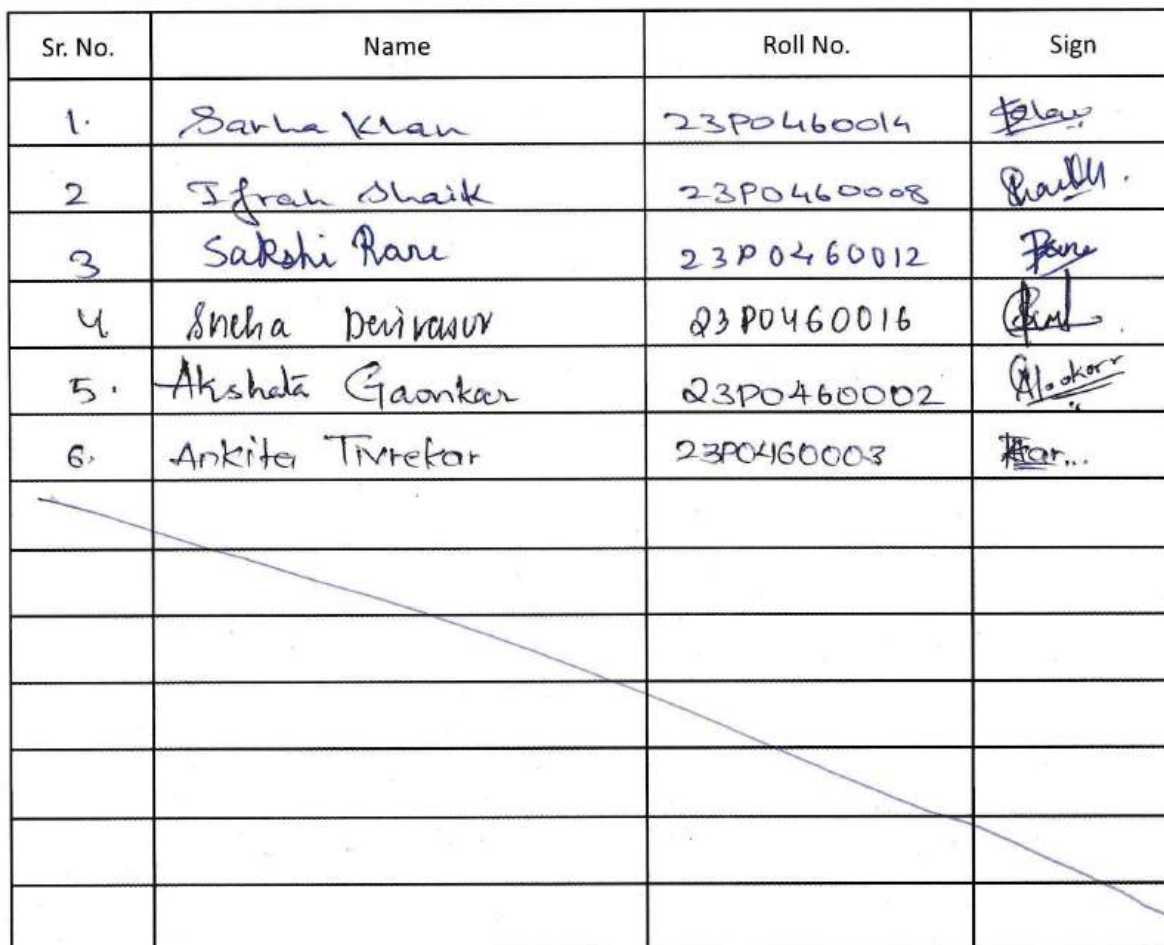 Sr. No. Name Roll No. Sign
1. Sarha Khan 23P0460014
2 Ifrah Shaik 23P0460008
3 Sakshi Rane 23P0460012
4 Sneha 23P0460016
5. Akshata Gaonkar 23P0460002
6. Ankita Tivrekar 23P0460003